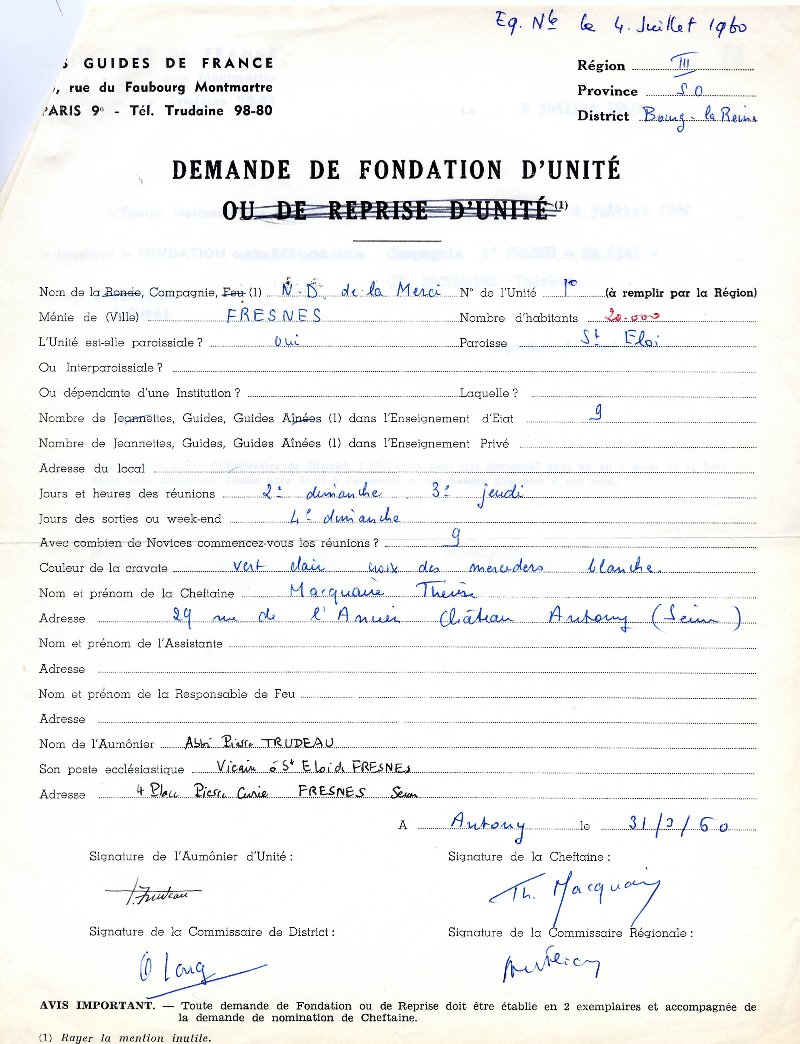 Eq. Nle le 4. Juillet 1960
S GUIDES DE FRANCE
, rue du Faubourg Montmartre
PARIS 9e - Tél. Trudaine 98-80
Région III
Province S O
District Bourg-la-Reine
DEMANDE DE FONDATION D'UNITÉ
OU DE REPRISE D'UNITÉ (1)
Nom de la Ronde, Compagnie, Feu (1) N.D. de la Merci N° de l'Unité 1° (à remplir par la Région)
Ménie de (Ville) FRESNES Nombre d'habitants 20.000
L'Unité est-elle paroissiale ? oui Paroisse St Eloi
Ou Interparoissiale ?
Ou dépendante d'une Institution ? Laquelle ?
Nombre de Jeannettes, Guides, Guides Aînées (1) dans l'Enseignement d'Etat 9
Nombre de Jeannettes, Guides, Guides Aînées (1) dans l'Enseignement Privé
Adresse du local
Jours et heures des réunions 2e dimanche 3e jeudi
Jours des sorties ou week-end 4e dimanche
Avec combien de Novices commencez-vous les réunions ? 9
Couleur de la cravate vert clair croix des blanche.
Nom et prénom de la Cheftaine Macquaire Thérèse
Adresse 29 rue de l'Ancien Château Antony (Seine)
Nom et prénom de l'Assistante
Adresse
Nom et prénom de la Responsable de Feu
Adresse
Nom de l'Aumônier Abbé Pierre TRUDEAU
Son poste ecclésiastique Vicaire à St Eloi de FRESNES
Adresse 4 Place Pierre Curie FRESNES Seine
A Antony le 31/ /60
Signature de l'Aumônier d'Unité :
Signature de la Cheftaine :
P. Trudeau
Th. Macquaire
Signature de la Commissaire de District :
Signature de la Commissaire Régionale :
AVIS IMPORTANT. — Toute demande de Fondation ou de Reprise doit être établie en 2 exemplaires et accompagnée de
la demande de nomination de Cheftaine.
(1) Rayer la mention inutile.